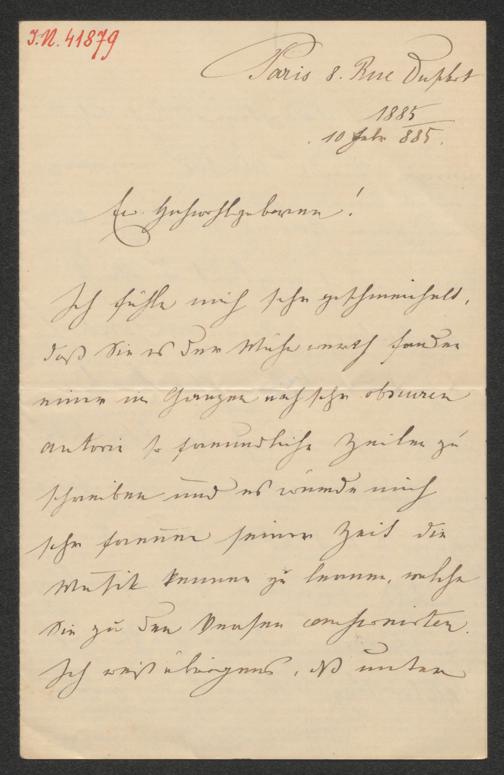 I.N. 41879
Paris 8. Rue Duphot
1885
10 Febr 885.
Ew. Hochwohlgeboren!
Ich fühle mich sehr geschmeichelt,
daß Sie es der Mühe werth fanden
einer im Ganzen noch sehr obscuren
Autorin so freundliche Zeilen zu
schreiben und es würde mich
sehr freuen seiner Zeit die
Musik kennen zu lernen, welche
Sie zu den Versen componirten.
Ich weiß übrigens, daß unter